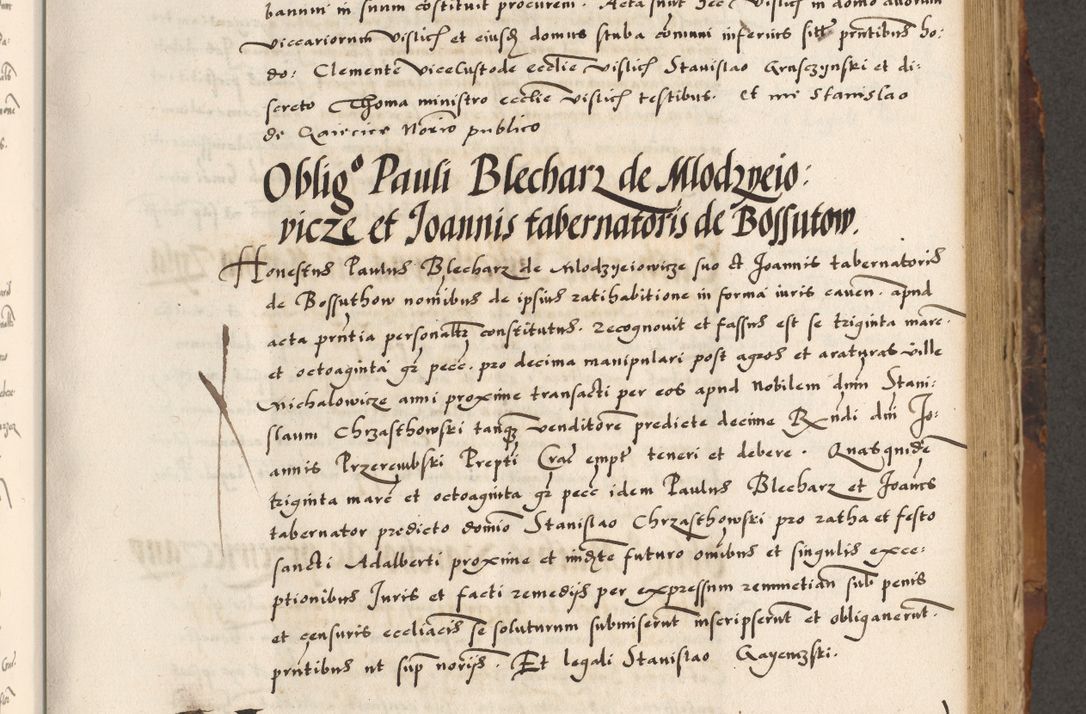 bannui in suum cōstituit procurem . Acta sunt Hec Vislicz in domo duorum
viccariorum Vislicz et eiusdē domus stuba cōmuni inferius sitt prntibus ho:
do: Clemente ViceCustode ecclie Vislicz Stanislao Gruszynski et di:
screto Thoma ministro ecclie Vislicz testibus. et me Stanislao
de Norio publico
Obligº Pauli Blecharz de Mlodzyeio:
vicze et Joannis tabernatoris de Bossutow.
Honestus Paulus Blecharz de Mlodzyeiowicze suo et Joannis tabernatoris
de Bossuthow nomibus de ipsius ratihabitione in forma iuris caven. apud
acta prntia personalr constitutus. recognovit et fassus est se triginta marc.
et octoaginta gr pecc. pro decima manipulari post agros et araturas ville
Michalowicze anni proxime transacti per eos apud Nobilem dnm Stani:
slaum Chrzasthowski tanqz venditorē predicte decime Rndi dni Jo:
annis Przerembski Prepti Crac empt teneri et debere . Quasquidē
triginta marc et octoaginta gr pecc idem Paulus Blecharz et Joanes
tabernator predicto domio Stanislao Chrząsthowski pro ratha et festo
sancti Adalberti proxime et imdte futuro omibus et singulis exce:
ptionibus Juris et facti remediis per expressum renunctian sub penis
et censuris eccliacis se soluturum submiserut inscripserut et obligauerut.
prntibus ut sup norijs. Et legali Stanislao Gayewski.